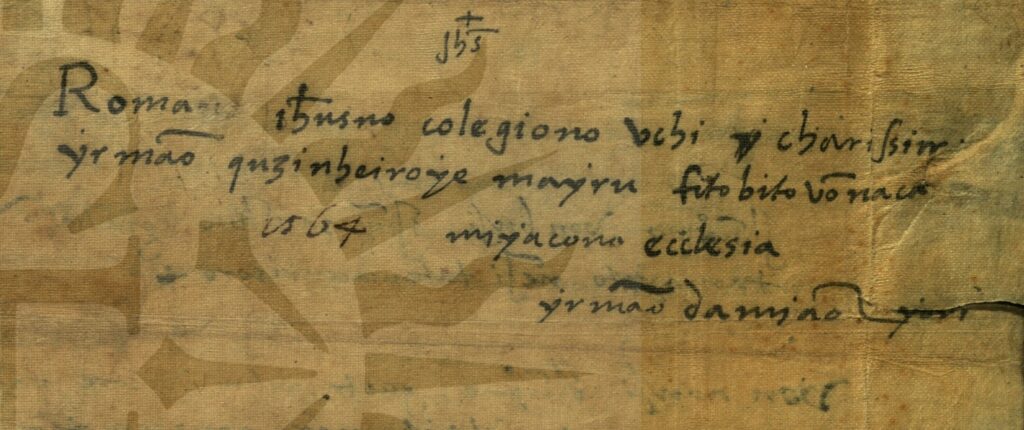 Jhs
Roma ihusno colegiono vchi charissim
yrmão quzinheiroye mayru fitobito vonaca
1564 miyacono ecclesia
yrmão damião yori